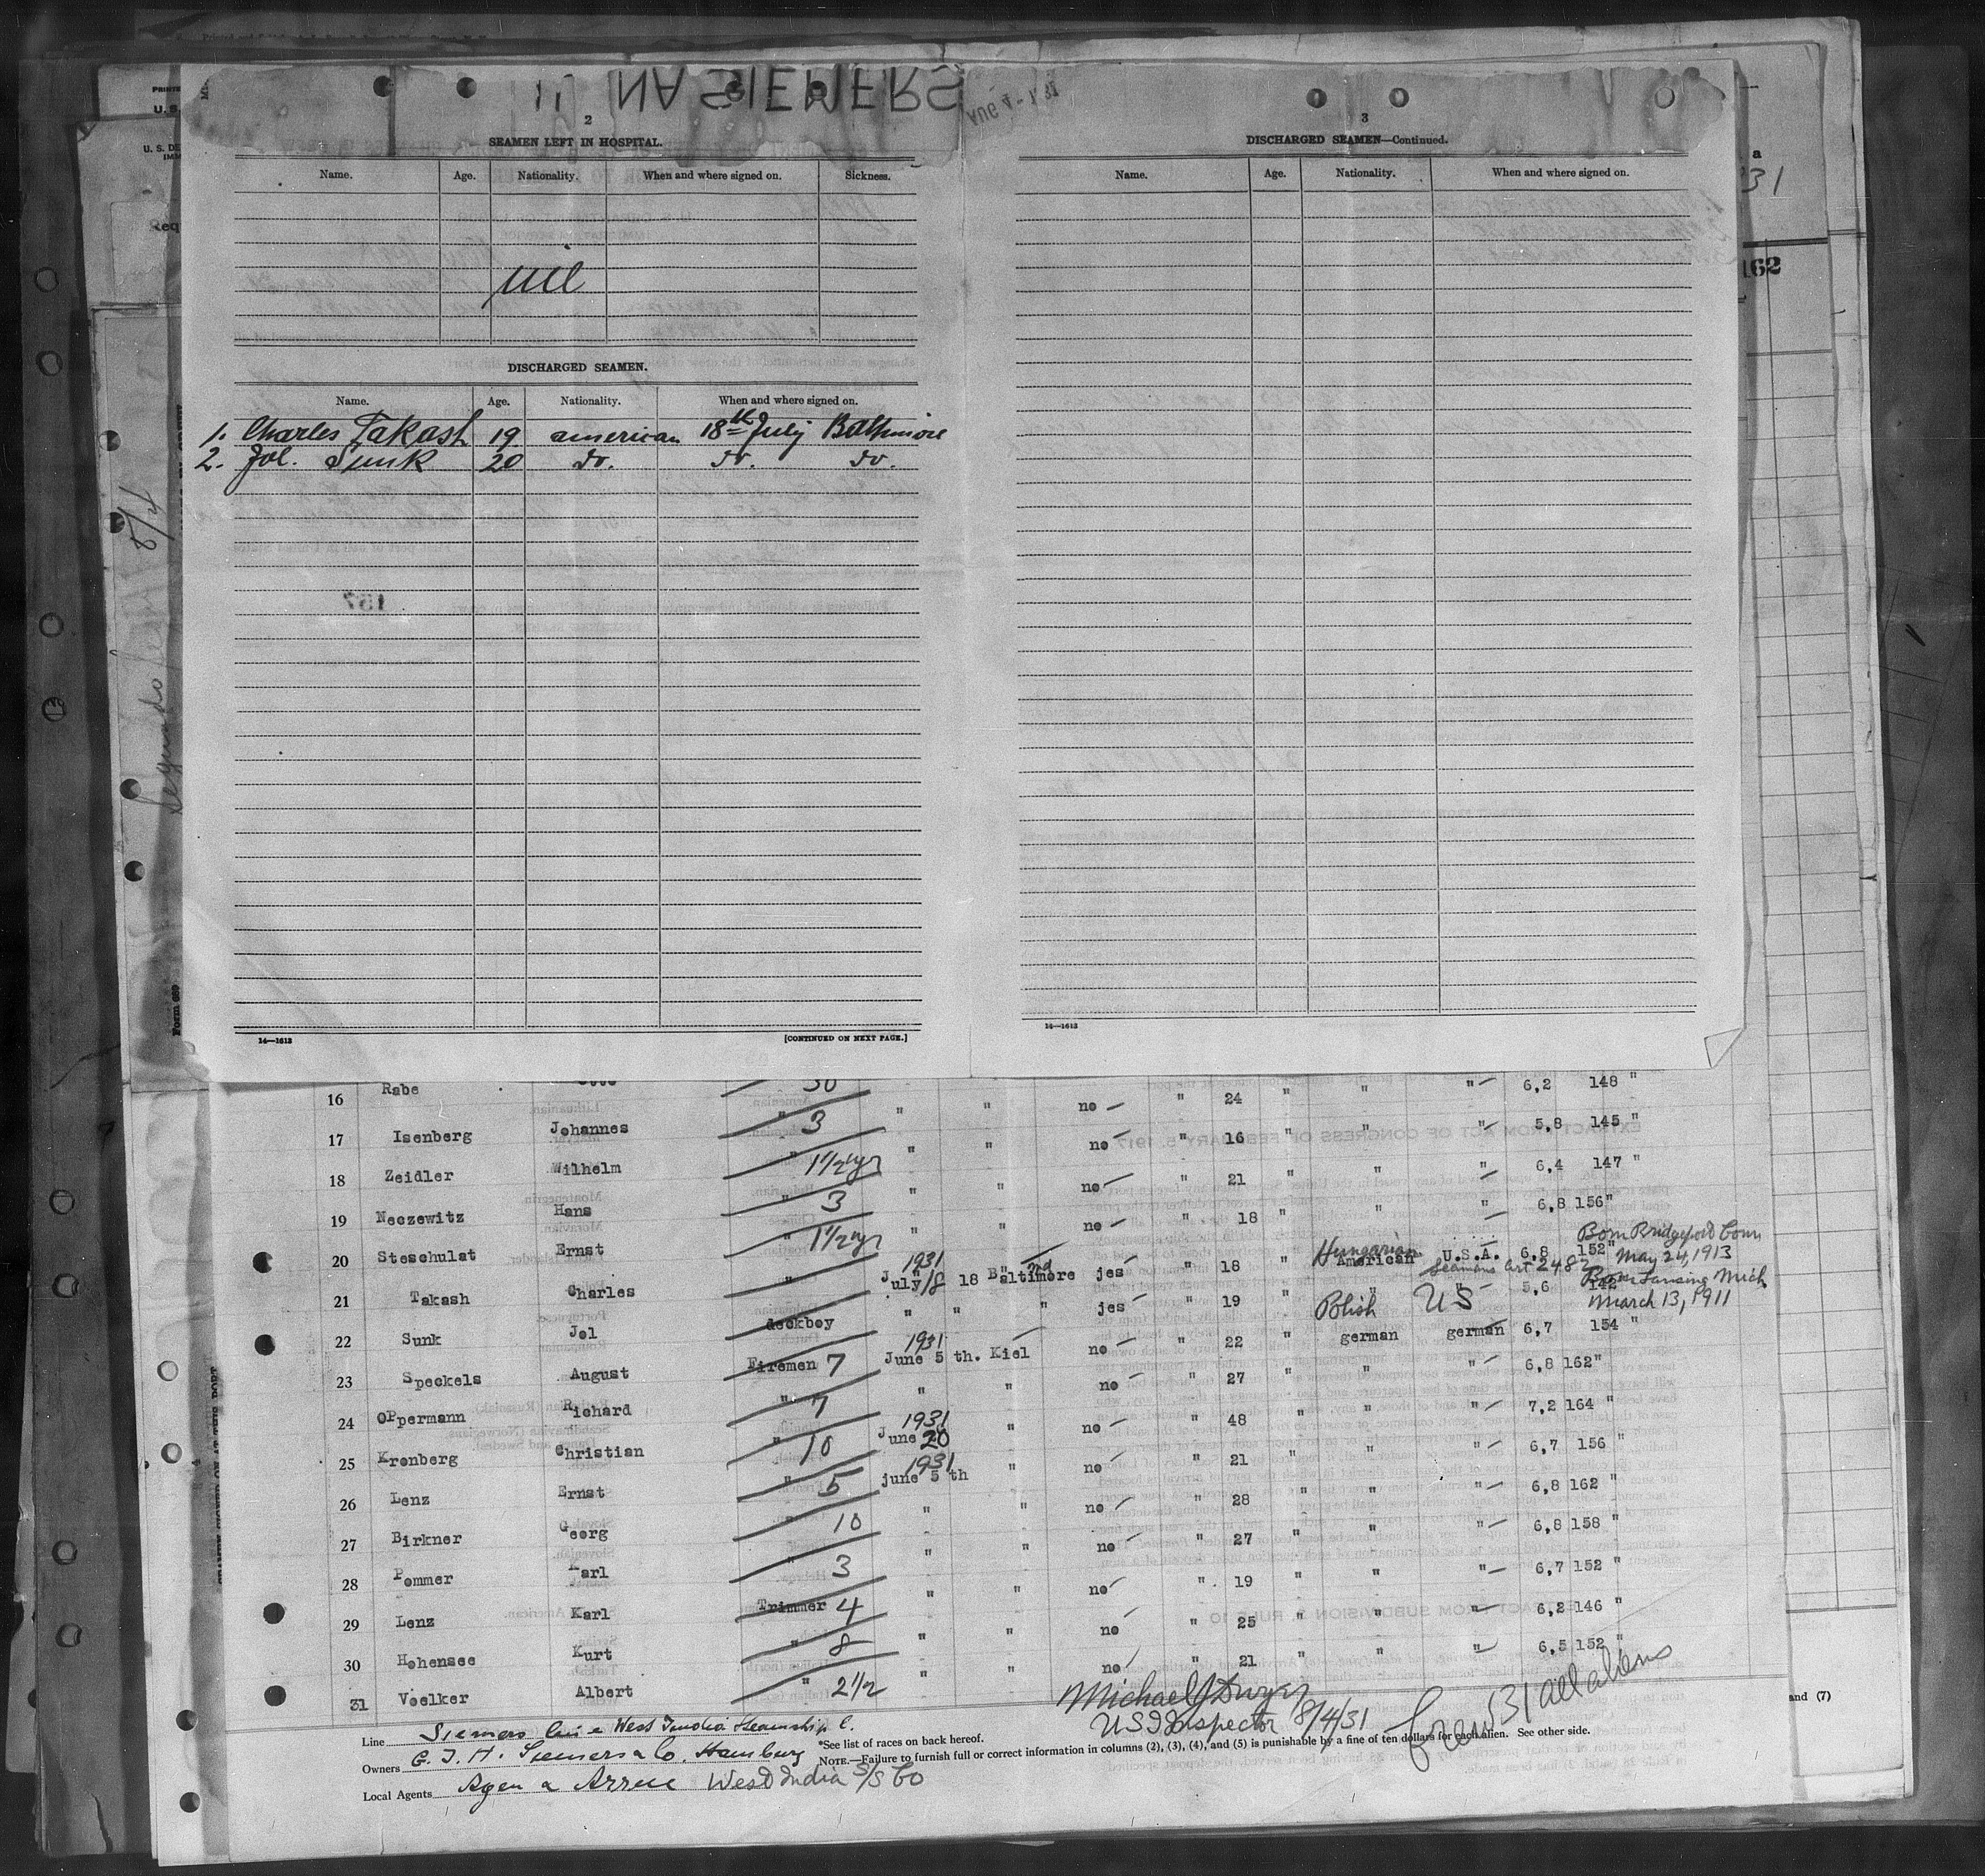 NA SIEMERS
AUG 4 - 1931
2
SEAMEN LEFT IN HOSPITAL.
Name. Age. Nationality. When and where signed on. Sickness.
nil
DISCHARGED SEAMEN.
Name. Age. Nationality. When and where signed on.
1. Charles Takash 19 american 18th July Baltimore
2. Jol. Sunk 20 do. do. do.
157
14—1613 [CONTINUED ON NEXT PAGE.]
3
DISCHARGED SEAMEN—Continued.
Name. Age. Nationality. When and where signed on.
14—1613
PRINTE
U. S.
U. S. DE
IMM
Req
8/4
Segundo
Form 689
a
31
162
16 Rabe 30 " " no " 24 " " " 6,2 148 "
17 Isenberg Johannes " 3 " " no " 16 " " " 5,8 145 "
18 Zeidler Wilhelm " 1 1/2 yr " " no " 21 " " " 6,4 147 "
19 Neczewitz Hans " 3 " " no " 18 " " " 6,8 156"
20 Steschulat Ernst " 1 1/2 yr
21 Takash Charles " 1931 July 18 Baltimore jes " 18 " Hungarian American U.S.A. 6,8 152" Born Bridgeport Conn May 24, 1913
Seamans Cert 2482
22 Sunk Jol deckboy " " " jes " 19 " Polish US 5,6 142 Born Lansing Mich March 13, 1911
23 Speckels August Firemen 7 1931 June 5 th. Kiel no " 22 " german german 6,7 154 "
24 OPpermann Richard " 7 " " no " 27 " " " 6,8 162"
25 Kronberg Christian " 10 1931 June 20 " no " 48 " " " 7,2 164 "
26 Lenz Ernst " 5 1931 june 5 th " no " 21 " " " 6,7 156 "
27 Birkner Georg 10 " " no " 28 " " " 6,8 162 "
28 Pommer Karl " 3 " " no " 27 " " " 6,8 158 "
29 Lenz Karl Trimmer 4 " " no " 19 " " " 6,7 152 "
30 Hohensee Kurt " 8 " " no " 25 " " " 6,2 146 "
31 Voelker Albert " 2 1/2 " " no " 21 " " " 6,5 152 "
Michael J Dwyer
US I Inspector 8/4/31
Crew 31 all aliens
and (7)
Line Siemers Line West India Steamship C.
Owners G. J. H. Siemers & Co. Hamburg
Local Agents West India S/S Co
*See list of races on back hereof.
NOTE.—Failure to furnish full or correct information in columns (2), (3), (4), and (5) is punishable by a fine of ten dollars for each alien. See other side.